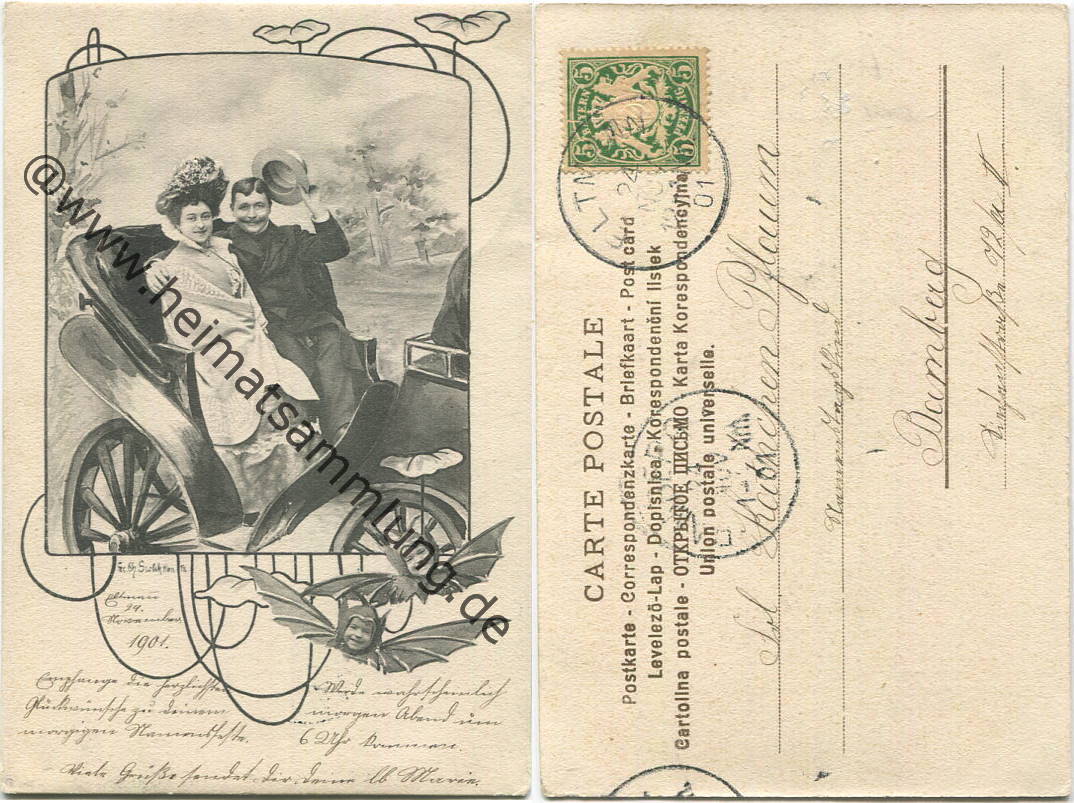 Eltmann
24.
November
1901.
Empfange die herzlichsten
Glückwünsche zu deinem
morgigen Namensfeste.
Werde wahrscheinlich
morgen Abend um
6 Uhr kommen.
Viele Grüße sendet dir deine lb Marie.
@www.heimatsammlung.de
5 5
BAYERN
PFENNIG
5 5
24
NOV
01
CARTE POSTALE
Postkarte - Correspondenzkarte - Briefkaart - Post card
Levelező-Lap - Dopisnica - Korespondenční lístek
Cartolina postale - ОТКРЫТОЕ ПИСЬМО - Karta Korespondencyjna
Union postale universelle.
Pflaum
Bamberg